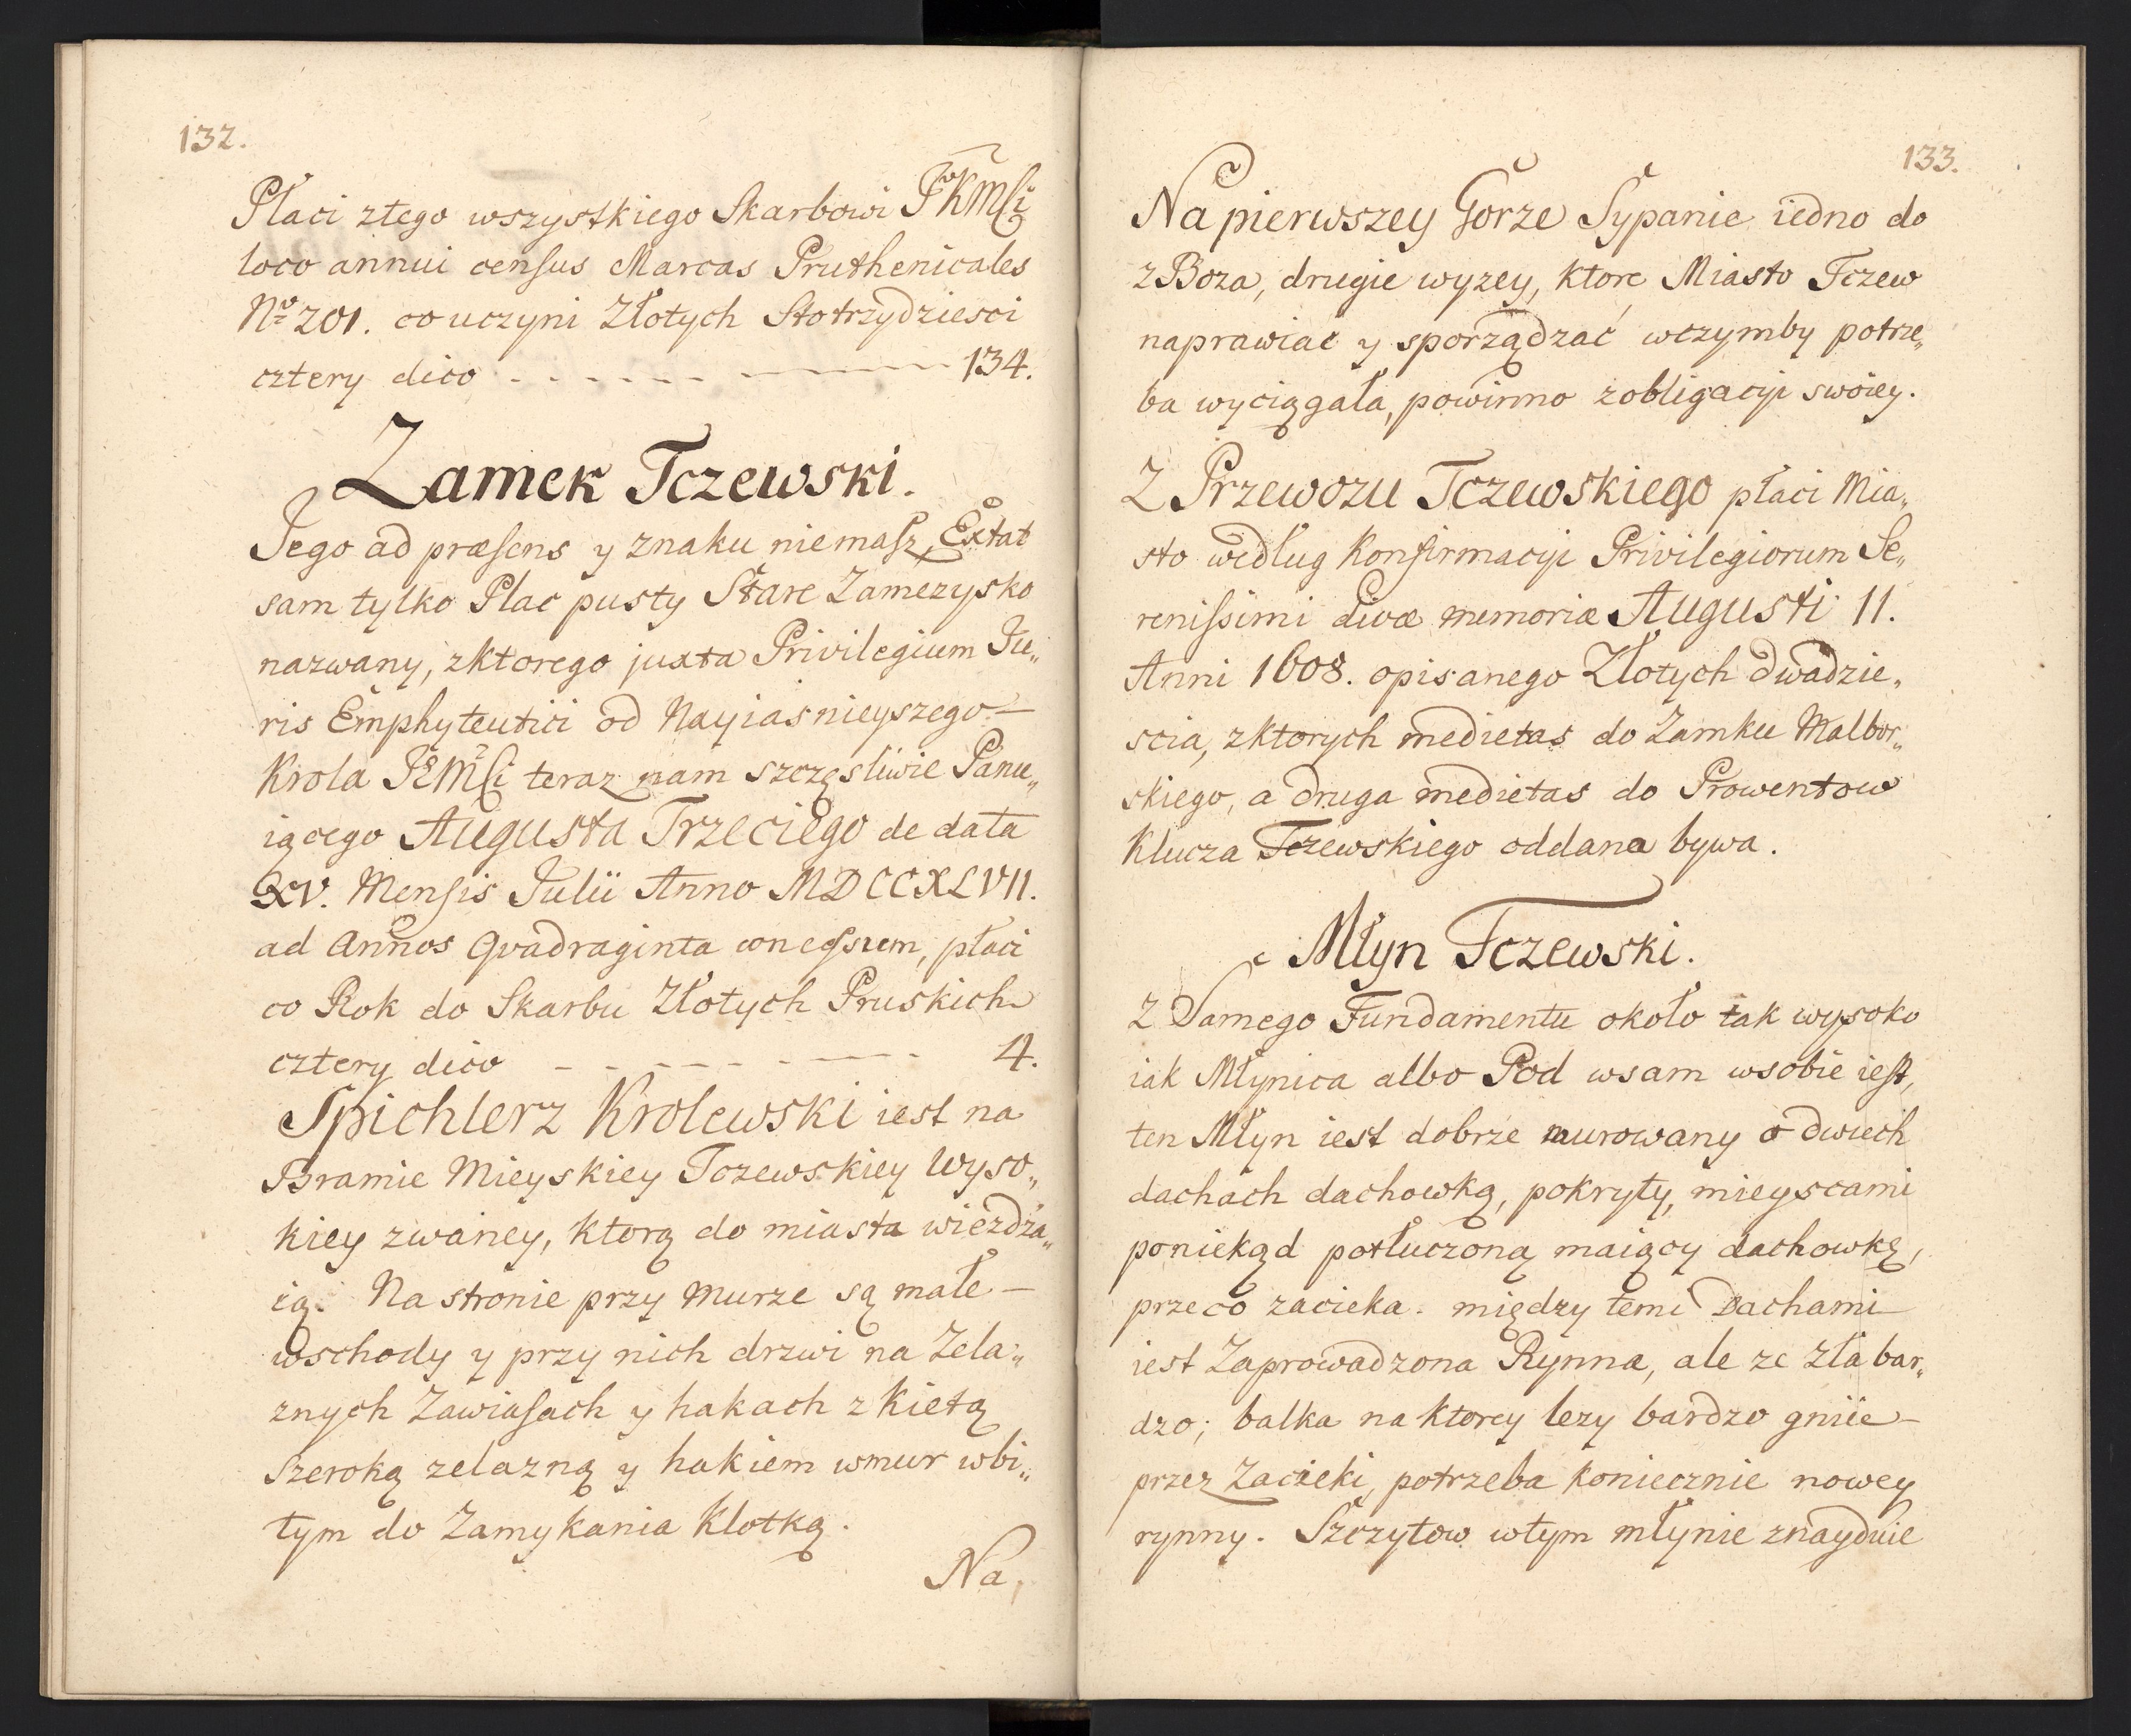 132.
Płaci ztego wszystkiego Skarbowi JKMSi
loco annui censûs Marcas Pruthenicales
No 201. co uczyni Złotych Stotrzydziesci
cztery dico - - - - - - - 134.
Zamek Tczewski.
Jego ad præsens y znaku niemasz, Extat
sam tylko Plac pusty Stare Zamczysko
nazwany, zktorego juxta Privilegium Ju„
ris Emphyteutici od Nayiasnieyszego
Krola JEMSi teraz nam szczęsliwie Panu„
iącego Augusta Trzeciego de data
XV. Mensis Julii Anno MDCCXLVII.
ad Annos Qvadraginta concessum, płaci
co Rok do Skarbu Złotych Pruskich
cztery dico - - - - - - - 4.
Spichlerz Krolewski iest na
Bramie Mieyskiey Tczewskiey Wyso„
kiey zwaney, ktorą do miasta wiezdza„
ią. Na stronie przy murze są małe
wschody y przy nich drzwi na Zela„
znych Zawiasach y hakach z Kietą
Szeroką zelazną y hakiem wmur wbi„
tym do Zamykania Klotką.
Na
133.
Na pierwszey Gorze Sypanie iedno do
zBoza, drugie wyzey, ktore Miasto Tczew
naprawiac y sporządzać wczymby potrze„
ba wyciągała, powinno zobligacyi swoiey.
Z Przewozu Tczewskiego płaci Mia„
sto według Konfirmacyi Privilegiorum Se„
renissimi divæ memoriæ Augusti II.
Anni 1608. opisanego Złotych dwadzie„
scia, zktorych medietas do Zamku Malbor„
skiego, a druga medietas do Prowentow
Klucza Tczewskiego oddana bywa.
Młyn Tczewski.
Z Samego Fundamentu około tak wysoko
iak Młynica albo Pod wsam wsobie iest,
ten Młyn iest dobrze murowany o dwiech
dachach dachowką, pokryty, mieyscami
poniekąd potłuczoną maiący dachowkę,
przeco zacieka. między temi Dachami
iest Zaprowadzona Rynna, ale ze Zła bar„
dzo; balka na ktorey lezy bardzo gniie
przez Zacieki, potrzeba koniecznie nowey
rynny. Szczytow wtym młynie znayduie